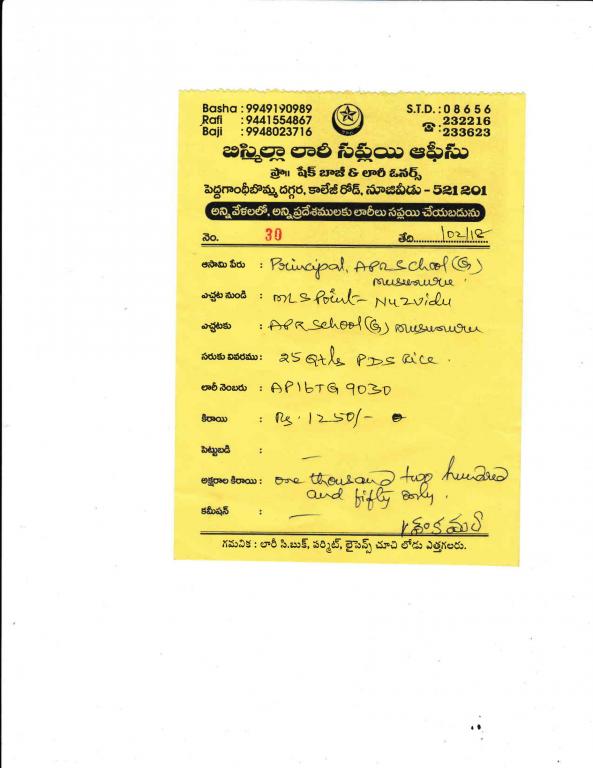 Basha : 9949190989 S.T.D. : 08656
Rafi : 9441554867 ☎ : 232216
Baji : 9948023716 233623
బిస్మిల్లా లారీ సప్లయి ఆఫీసు
ప్రొ॥ షేక్ బాజీ & లారీ ఓనర్స్
పెద్దగాంధీబొమ్మ దగ్గర, కాలేజీ రోడ్, నూజివీడు - 521 201
అన్ని వేళలలో, అన్ని ప్రదేశములకు లారీలు సప్లయి చేయబడును
నెం. 30 తేది............/02/18
ఆసామి పేరు : Principal, APRSchool (G)
musunuru.
ఎచ్చట నుండి : MLS Point - Nuzvidu
ఎచ్చటకు : APRSchool (G) musunuru
సరుకు వివరము : 25 Qtls PDS Rice.
లారీ నెంబరు : AP16TG 9030
కిరాయి : Rs. 1250/-
పెట్టుబడి : —
అక్షరాల కిరాయి : one thousand two hundred
and fifty only.
కమీషన్ : —
గమనిక : లారీ సి.బుక్, పర్మిట్, లైసెన్స్ చూచి లోడు ఎత్తగలరు.